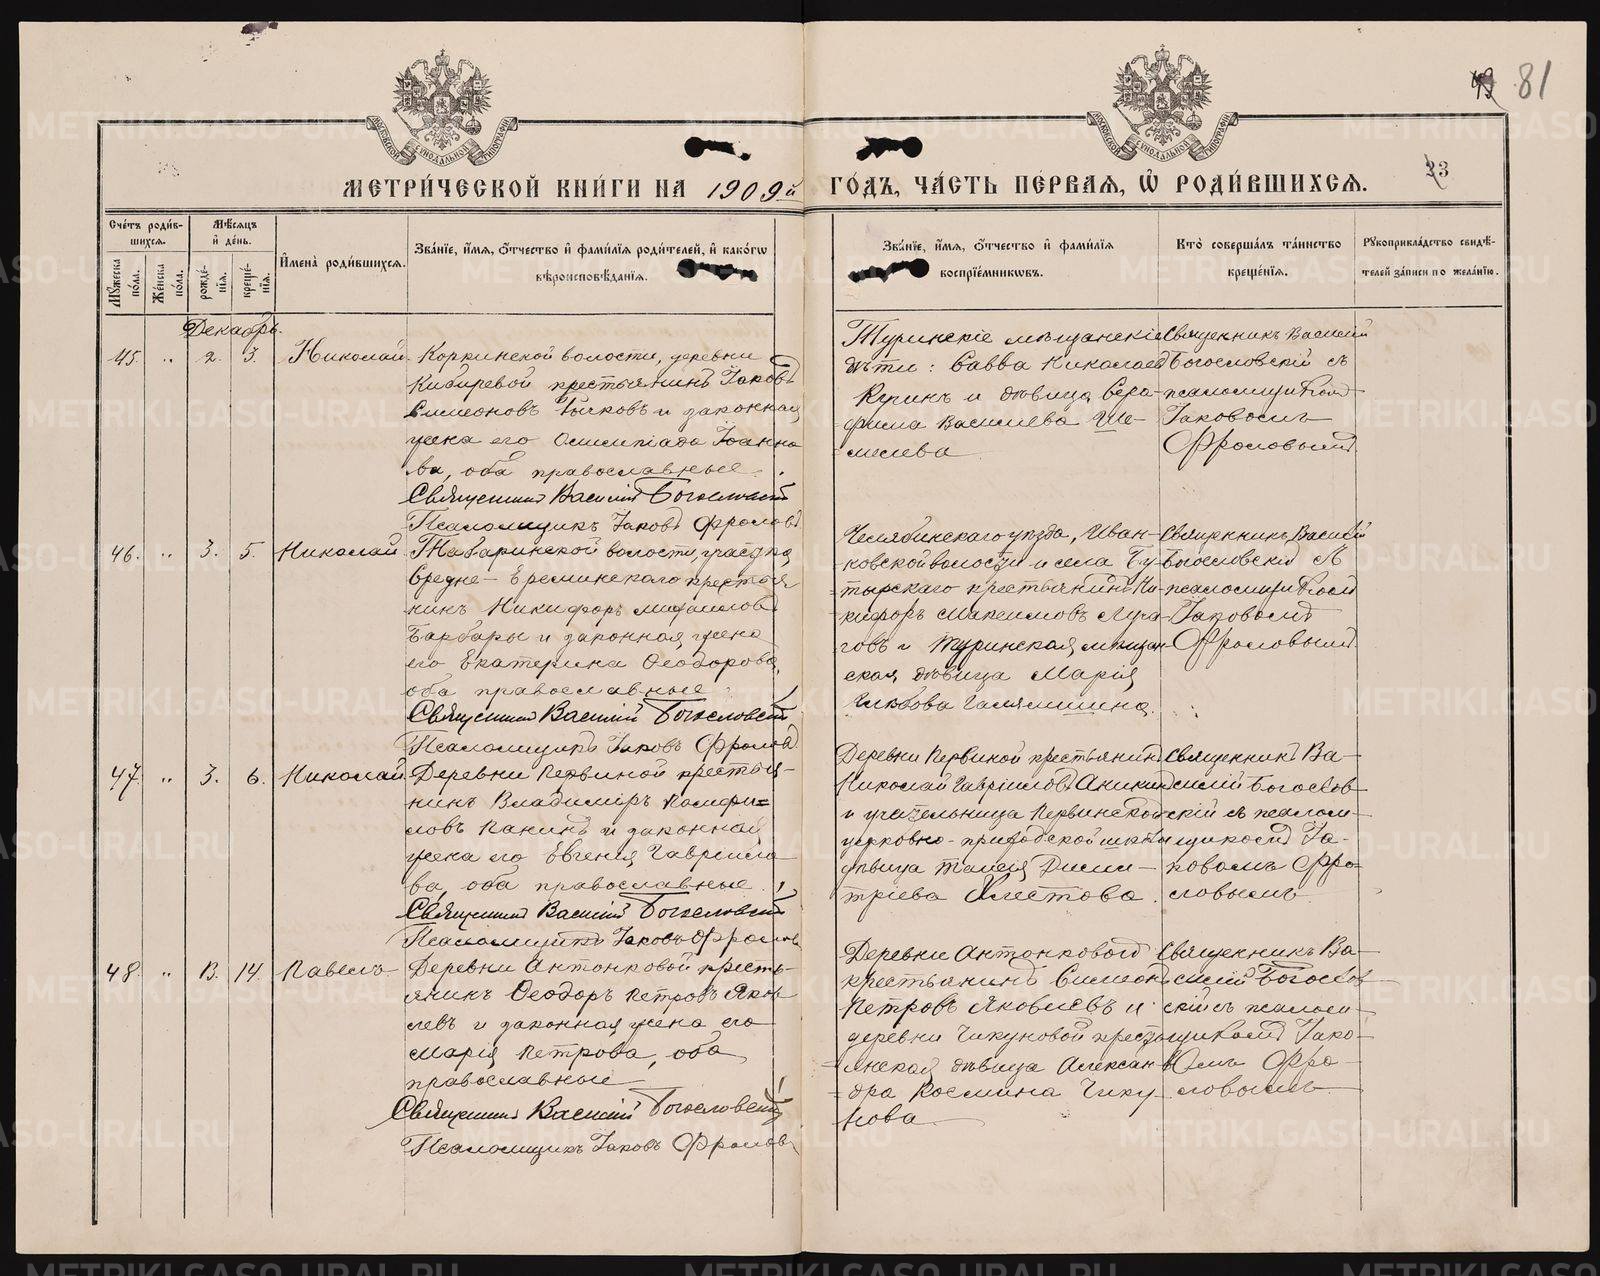 81
МЕТРИ́ЧЕСКОЙ КНИ́ГИ НА 1909й ГО́ДЪ, ЧА́СТЬ ПЕ́РВАЯ, Ѡ РОДИ́ВШИХСЯ.
23
Сче́тъ роди́в-
шихся.
Мѣ́сяцъ
и де́нь.
Мꙋ́жеска по́ла.
Же́нска по́ла.
рожде́-нїя.
креще́-нїя.
И҆мена̀ роди́вшихся.
Зва́нїе, и҆́мя, ѻ҆́тчество и҆ фами́лїя роди́телей, и҆ како́гѡ
вѣроисповѣ́данїя.
Зва́нїе, и҆́мя, ѻ҆́тчество и҆ фами́лїя
воспрїе́мникѡвъ.
Кто̀ соверша́лъ та́инство
креще́нїя.
Рꙋкоприкла́дство свидѣ́-
телей за́писи по жела́нїю.
Декабрь.
45. " 2. 3. Николай
Коркинской волости, деревни
Кибиревой крестьянинъ Іаковъ
Симеоновъ Бычковъ и законная
жена его Олимпіада Іоанно
ва, оба православные.
Священникъ Василій Богословскій
Псаломщикъ Іаковъ Фроловъ
Туринскіе мѣщанскіе
дѣти: Савва Николаевъ
и дѣвица Сера-
фима Васильева Ше-
мелева
Священникъ Василій
Богословскій съ
псаломщикомъ
Іаковомъ
Фроловымъ
46. " 3. 5. Николай
Табаринской волости, участка
Средне-Еремински­го крестья
нинъ Никифоръ Михаиловъ
Барбары и законная жена
его Екатерина Ѳеодорова,
оба православные
Священникъ Василій Богословскій
Псаломщикъ Іаковъ Фроловъ
Челябинскаго уѣзда, Иван-
ковской волости и села Бу-
тырскаго крестьянинъ Ни-
кифоръ Максимовъ Луга-
говъ и Туринская мѣщан-
ская дѣвица Марія
Глѣбова
Священникъ Василій
Богословскій съ
псаломщикомъ
Іаковомъ
Фроловымъ
47. " 3. 6. Николай
Деревни Первиной крестья-
нинъ Владиміръ Памфи=
ловъ Панинъ и законная
жена его Евгенія Гавріило
ва, оба православные
Священникъ Василій Богословскій
Псаломщикъ Іаковъ Фроловъ
Деревни Первиной крестьянинъ
Николай Гавріиловъ Аникинъ
и учительница Первинской
церковно-приходской школы
дѣвица Таисія Дими-
тріева Хлестова
Священникъ Ва-
силій Богослов-
скій съ псалом-
щикомъ Іа-
ковомъ Фро-
ловымъ
48. " 13. 14. Павелъ
Деревни Антонковой кресть-
янинъ Ѳеодоръ Петровъ Яков
левъ и законная жена его
Марія Петрова, оба
православные
Священникъ Василій Богословскій
Псаломщикъ Іаковъ Фроловъ
Деревни Антонковой
крестьянинъ Симеонъ
Петровъ Яковлевъ и
деревни Чикуновой кресть-
янская дѣвица Алексан-
дра Космина Чику-
нова
Священникъ Ва-
силій Богослов
скій съ псалом-
щикомъ Іако-
вомъ Фро-
ловымъ
METRIKI.GASO-URAL.RU